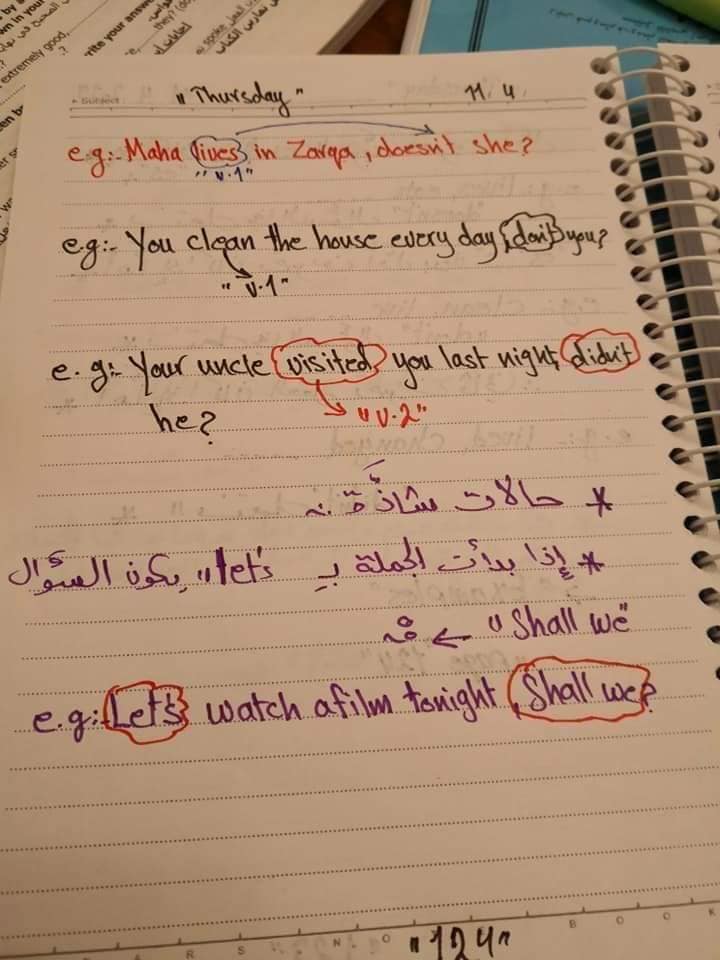 own in your
extremely good,
rite your answer
Subject "Thursday" 11.4.
e.g:- Maha lives in Zarqa, doesn't she?
"v.1"
e.g:- You clean the house every day, don't you?
"v.1"
e.g:- Your uncle visited you last night, didn't
he?
"v.2"
* حالات شاذّة :-
* إذا بدأت الجملة بـ "let's" يكون السؤال
"Shall we" ←
e.g:- Let's watch a film tonight, Shall we?
N O B O O K
"124"